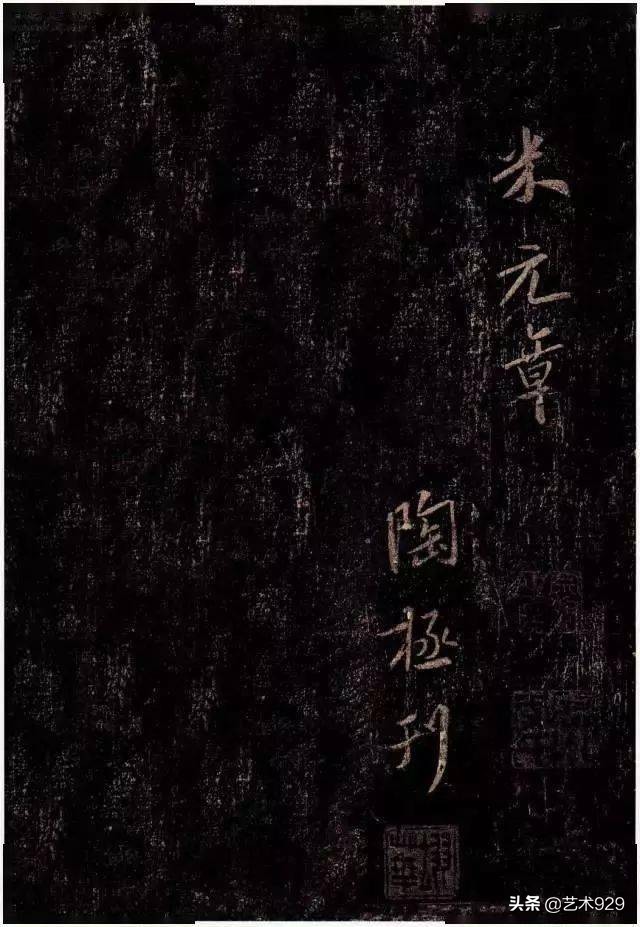 米元章
陶極刊
头条 @艺术929